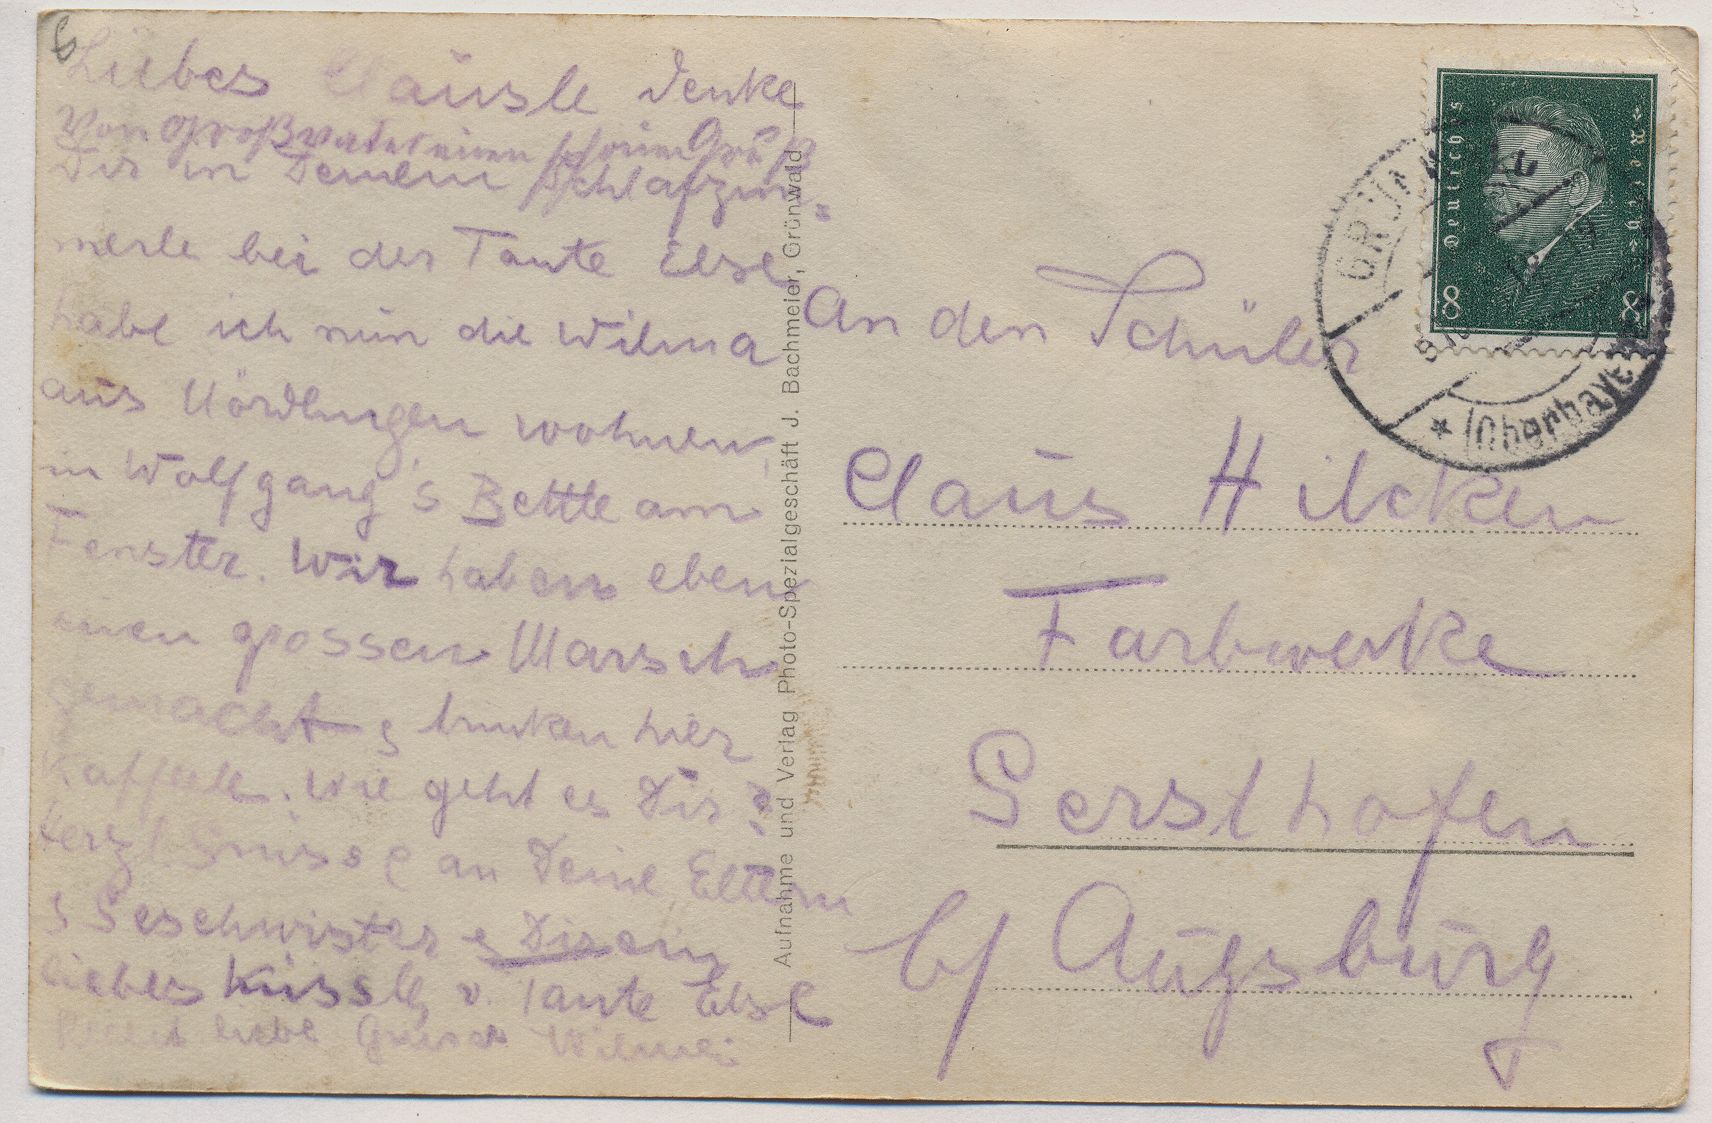 Liebes Clausle denke
Von Großvater einen schönen Gruß
Dir in Deinem Schlafzim=
merle bei der Tante Else
habe ich nun die Wilma
aus Nördlingen wohnen,
in Wolfgang's Bettle am
Fenster. Wir haben eben
einen grossen Marsch
gemacht & trinken hier
Kaffeele. Wie geht es Dir?
Herzl Grüsse an Deine Eltern
& Geschwister & Dir ein
liebes Küssle v. Tante Else
liebe Grüsse
Aufnahme und Verlag Photo-Spezialgeschäft J. Bachmeier, Grünwald
Deutsches Reich
8 8
(Oberbaye
An den Schüler
Claus Hilcken
Farbwerke
Gersthofen
b/ Augsburg